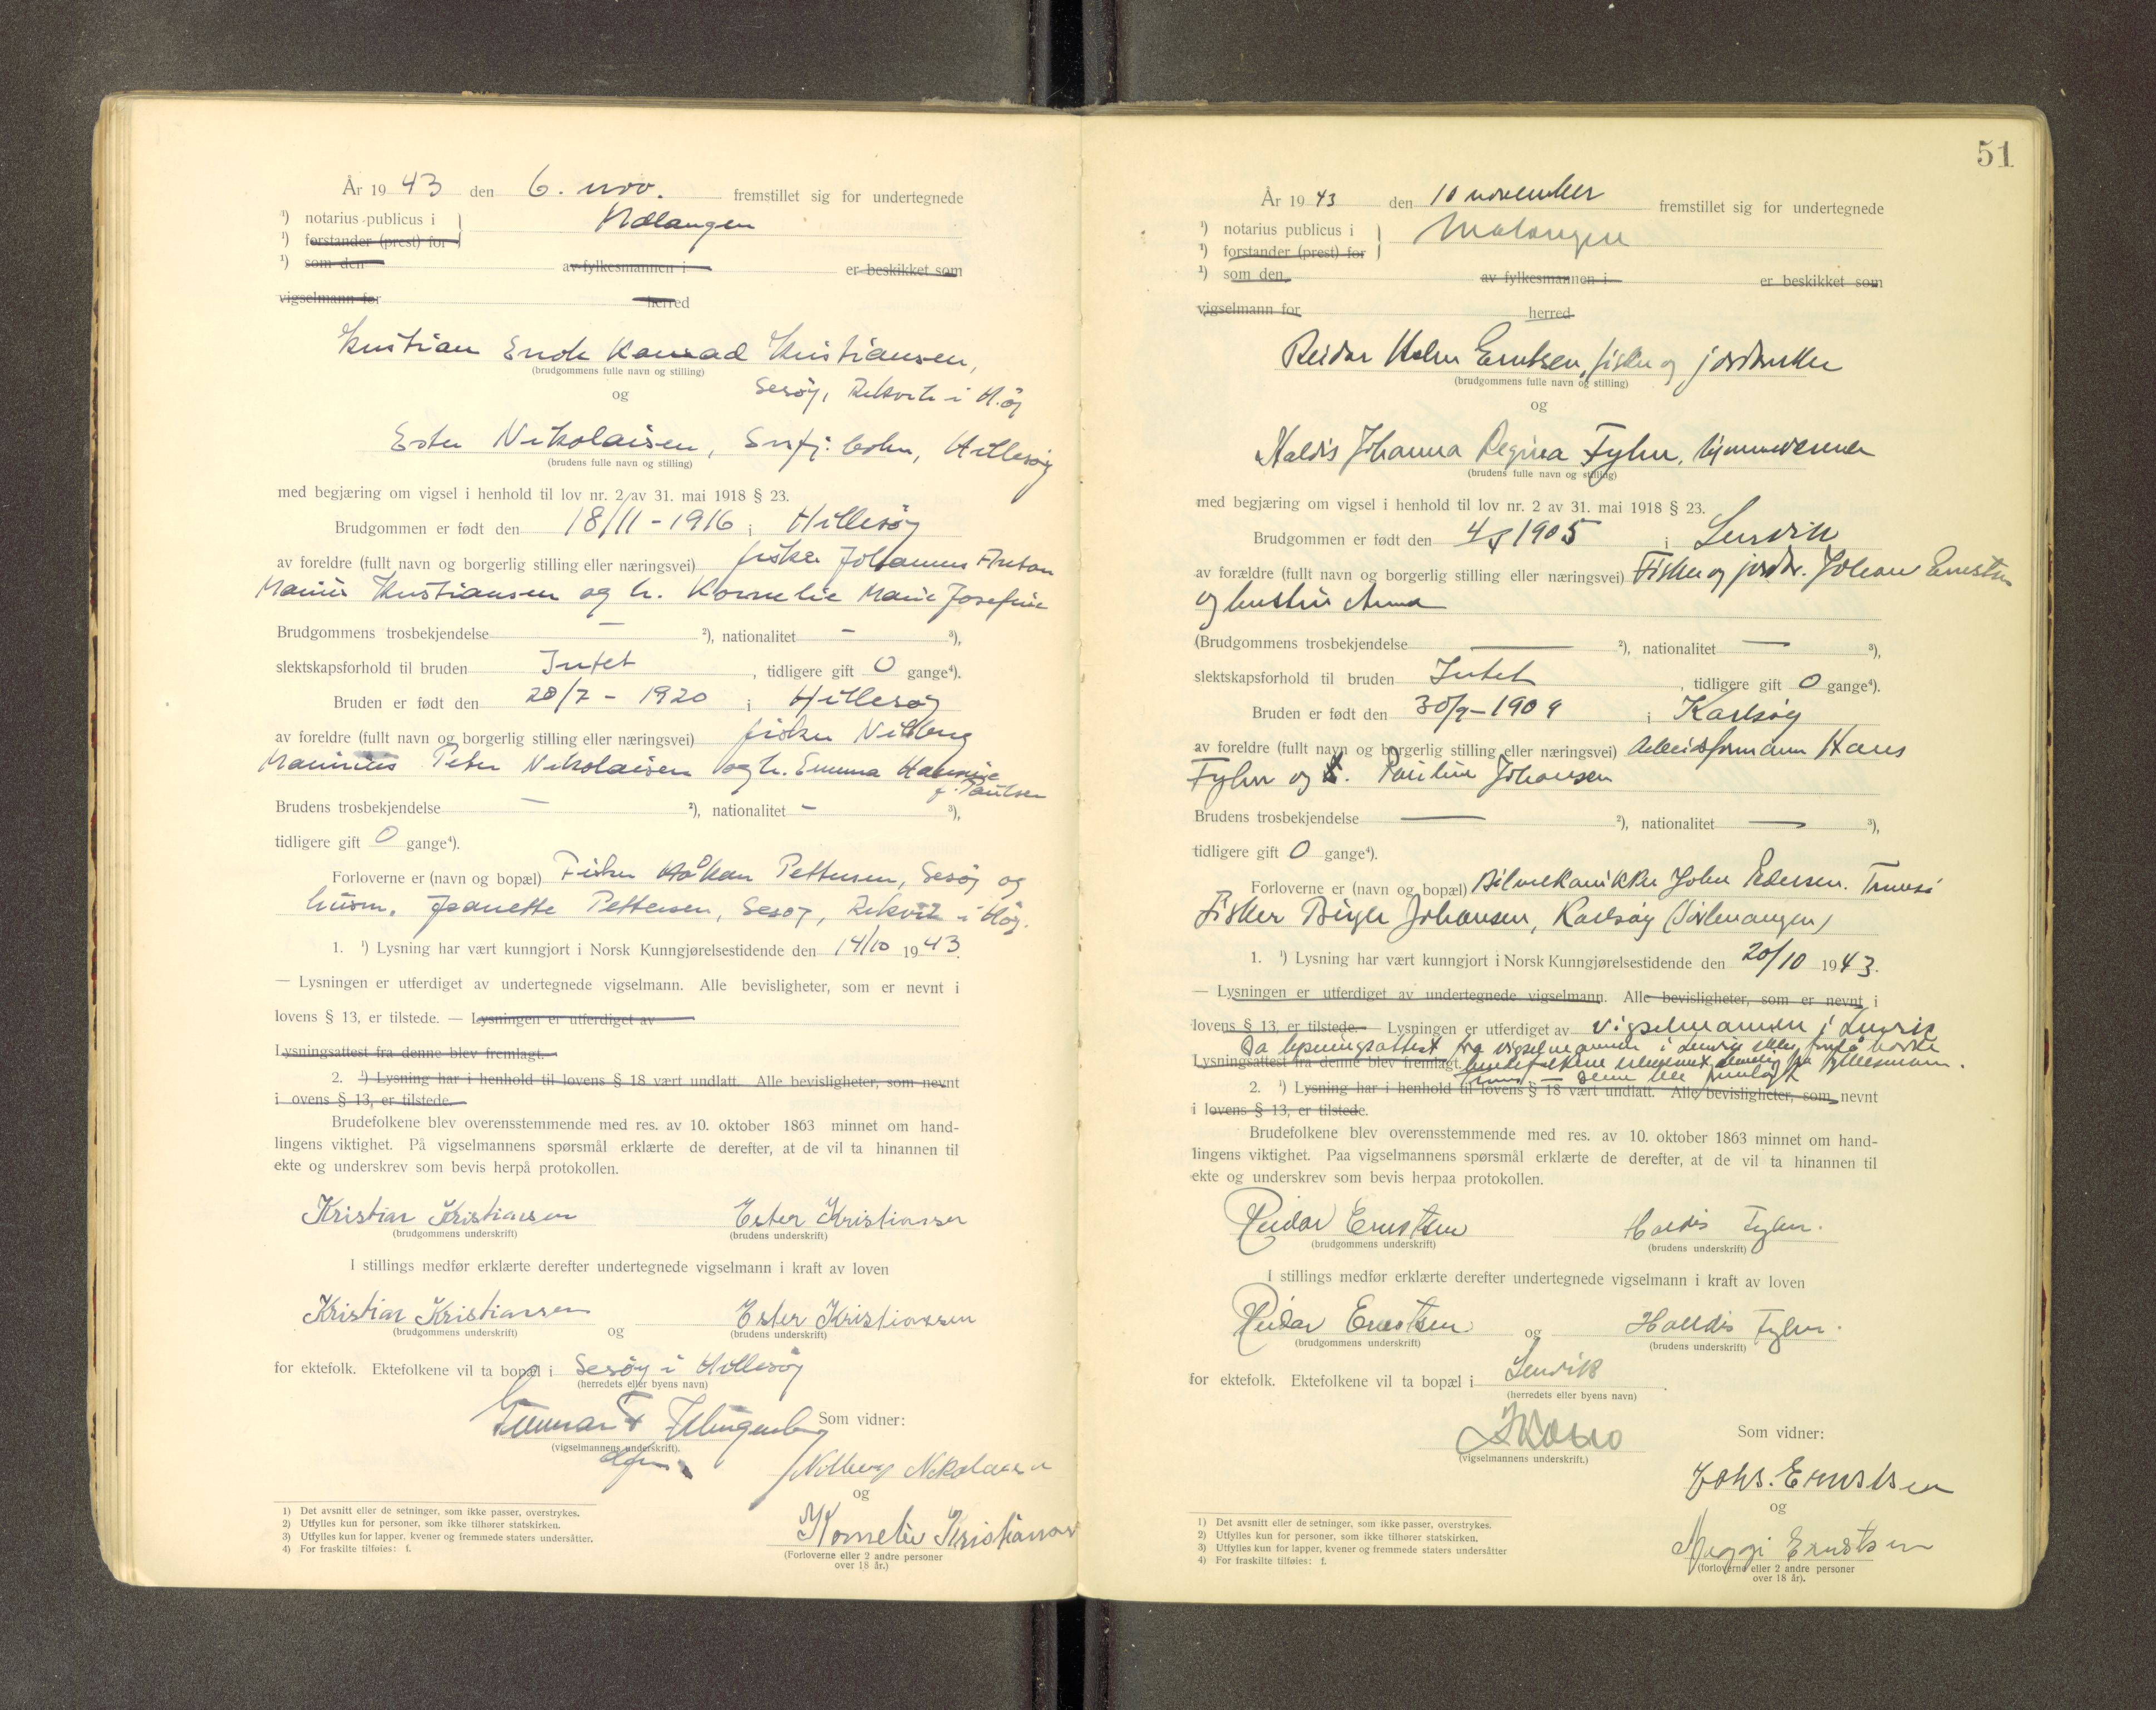 År 19 43 den 6. nov. fremstillet sig for undertegnede
¹) notarius publicus i Malangen
¹) forstander (prest) for
¹) som den av fylkesmannen i er beskikket som
vigselmann for herred
Kristian Enok Konrad Kristiansen,
(brudgommens fulle navn og stilling)
og Sesøy, Rekvik i H.øy
Ester Nikolaisen, Hillesøy
(brudens fulle navn og stilling)
med begjæring om vigsel i henhold til lov nr. 2 av 31. mai 1918 § 23.
Brudgommen er født den 18/11 - 1916 i Hillesøy
av foreldre (fullt navn og borgerlig stilling eller næringsvei) fisker Johannes Anton
Marius Kristiansen og h. Kornelie Marie Josefine
Brudgommens trosbekjendelse — ²), nationalitet — ³),
slektskapsforhold til bruden Intet, tidligere gift 0 gange⁴).
Bruden er født den 28/7 - 1920 i Hillesøy
av foreldre (fullt navn og borgerlig stilling eller næringsvei) fisker Nilberg
Mannius Peter Nikolaisen og h. Emma Hannie
f. Paulsen
Brudens trosbekjendelse — ²), nationalitet — ³),
tidligere gift 0 gange⁴).
Forloverne er (navn og bopæl) Fisker Håkon Pettersen, Sesøy og
husm. Jeanette Pettersen, Sesøy, Rekvik i H.øy.
1. ¹) Lysning har vært kunngjort i Norsk Kunngjørelsestidende den 14/10 1943.
— Lysningen er utferdiget av undertegnede vigselmann. Alle bevisligheter, som er nevnt i
lovens § 13, er tilstede. — Lysningen er utferdiget av
Lysningsattest fra denne blev fremlagt.
2. ¹) Lysning har i henhold til lovens § 18 vært undlatt. Alle bevisligheter, som nevnt
i ovens § 13, er tilstede.
Brudefolkene blev overensstemmende med res. av 10. oktober 1863 minnet om hand-
lingens viktighet. På vigselmannens spørsmål erklærte de derefter, at de vil ta hinannen til
ekte og underskrev som bevis herpå protokollen.
Kristian Kristiansen Ester Kristiansen
(brudgommens underskrift) (brudens underskrift)
I stillings medfør erklærte derefter undertegnede vigselmann i kraft av loven
Kristian Kristiansen og Ester Kristiansen
(brudgommens underskrift) (brudens underskrift)
for ektefolk. Ektefolkene vil ta bopæl i Sesøy i Hillesøy
(herredets eller byens navn)
Gunnar Klingenberg Som vidner:
(vigselmannens underskrift).
Nilberg Nikolaisen
og
Kornelie Kristiansen
(Forloverne eller 2 andre personer
over 18 år.)
1) Det avsnitt eller de setninger, som ikke passer, overstrykes.
2) Utfylles kun for personer, som ikke tilhører statskirken.
3) Utfylles kun for lapper, kvener og fremmede staters undersåtter.
4) For fraskilte tilføies: f.
51
År 19 43 den 10 november fremstillet sig for undertegnede
¹) notarius publicus i Malangen
¹) forstander (prest) for
¹) som den av fylkesmannen i er beskikket som
vigselmann for herred
Reidar Holm Erntsen, fisker og jordbruker
(brudgommens fulle navn og stilling)
og
Haldis Johanna Regina Fyhn, hjemmeværende
(brudens fulle navn og stilling)
med begjæring om vigsel i henhold til lov nr. 2 av 31. mai 1918 § 23.
Brudgommen er født den 1905 i Lenvik
av forældre (fullt navn og borgerlig stilling eller næringsvei) Fisker og jordbr. Johan Ernstsen
og hustru Anna
(Brudgommens trosbekjendelse — ²), nationalitet — ³),
slektskapsforhold til bruden Intet, tidligere gift 0 gange⁴).
Bruden er født den 30/9 - 1909 i Karlsøy
av foreldre (fullt navn og borgerlig stilling eller næringsvei) Arbeidsformann Hans
Fyhn og Pauline Johansen
Brudens trosbekjendelse — ²), nationalitet — ³),
tidligere gift 0 gange⁴).
Forloverne er (navn og bopæl) Bilmekanikker John Pedersen. Tromsø
Fisker Birger Johansen, Karlsøy
1. ¹) Lysning har vært kunngjort i Norsk Kunngjørelsestidende den 20/10 1943.
— Lysningen er utferdiget av undertegnede vigselmann. Alle bevisligheter, som er nevnt i
lovens § 13, er tilstede. — Lysningen er utferdiget av vigselmannen i Lenvik
Da lysningsattest fra vigselmannen i Lenvik
Lysningsattest fra denne blev fremlagt. fylkesmann.
denne ble fremlagt
2. ¹) Lysning har i henhold til lovens § 18 vært undlatt. Alle bevisligheter, som nevnt
i lovens § 13, er tilstede.
Brudefolkene blev overensstemmende med res. av 10. oktober 1863 minnet om hand-
lingens viktighet. Paa vigselmannens spørsmål erklærte de derefter, at de vil ta hinannen til
ekte og underskrev som bevis herpaa protokollen.
Reidar Ernstsen Haldis Fyhn.
(brudgommens underskrift) (brudens underskrift)
I stillings medfør erklærte derefter undertegnede vigselmann i kraft av loven
Reidar Ernstsen og Halldis Fyhn.
(brudgommens underskrift) (brudens underskrift)
for ektefolk. Ektefolkene vil ta bopæl i Lenvik
(herredets eller byens navn)
Som vidner:
(vigselmannens underskrift.)
Johs. Ernstsen
og
Maggi Ernstsen
(forloverne eller 2 andre personer
over 18 år).
1) Det avsnitt eller de setninger, som ikke passer, overstrykes.
2) Utfylles kun for personer, som ikke tilhører statskirken.
3) Utfylles kun for lapper, kvener og fremmede staters undersåtter
4) For fraskilte tilføies: f.